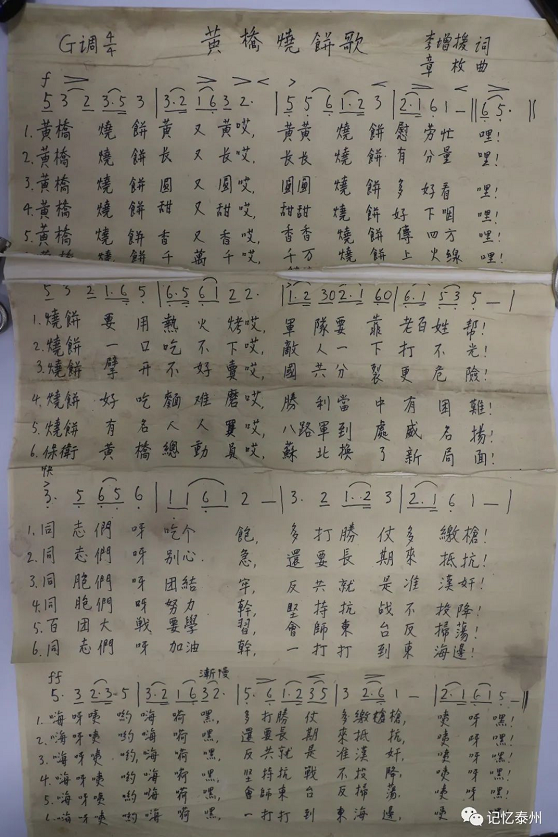 G调 4/4 黄橋燒餅歌 李增援 词
章枚 曲
f
5 3 2 3·5 3 | 3·2 1 6 3 2· | 5 5 6 1·2 3 | 2·1 6 1 — | 6 5· ||
1.黄橋 燒 餅 黄 又 黄哎, 黄黄 燒 餅 慰 劳 忙 嘿!
2.黄橋 燒 餅 長 又 長哎, 長長 燒 餅 有 分量 嘿!
3.黄橋 燒 餅 圓 又 圓哎, 圓圓 燒 餅 多 好看 嘿!
4.黄橋 燒 餅 甜 又 甜哎, 甜甜 燒 餅 好 下咽 嘿!
5.黄橋 燒 餅 香 又 香哎, 香香 燒餅 傳 四方 嘿!
燒 餅 千 萬 千哎, 千万 燒餅 上 火線 嘿!
5 3 2 1·6 5 | 6·5 6 1 2 2· | 1·2 3 0 2·1 6 0 | 6·1 5 3 5 — |
1.燒餅 要 用 熱 火 烤哎, 軍 隊要 靠 老百姓 幫!
2.燒餅 一 口 吃 不 下哎, 敵 人 一 下 打 不 光!
3.燒餅 擘 开 不 好 賣哎, 國 共 分 裂 更 危 險!
4.燒餅 好 吃 麵 难 磨哎, 勝 利當 中 有 困 難!
5.燒餅 有 名 人 人 買哎, 八路軍到 處 威 名 揚!
6.保衛 黄 橋 總 動 員哎, 蘇 北換 了 新 局 面!
快
3· 5 6 5 6 | 1 1 6 1 2 — | 3· 2 1·2 3 | 2·1 6 1 — |
1.同 志 們 呀 吃个 飽, 多 打 勝 仗 多 繳 槍!
2.同 志 們 呀 别心 急, 還 要 長 期 來 抵 抗!
3.同 胞 們 呀 団結 牢, 反 共 就 是 准 漢 奸!
4.同 胞 們 呀 努力 幹, 堅 持 抗 战 不 投 降!
5.百 团 大 戰 要學 習, 會 師 東 台 反 掃 蕩!
6.同 志 們 呀 加油 幹, 一 打 打 到 東 海 邊!
ff 漸慢
5· 3 2·3 5 | 3·2 1 6 3 2· | 5· 6 1·2 3 5 | 3 2·6 1 — | 2·1 6 1 5 — |
1.嗨 呀 咦 喲 嗨 嗬 嘿, 多 打勝 仗 多繳槍槍, 咦 呀 嘿!
2.嗨 呀 咦 喲 嗨 嗬 嘿, 還 要長 期 來 抵 抗, 咦 呀 嘿!
3.嗨 呀 咦 喲 嗨 嗬 嘿, 反 共就 是 准 漢 奸, 咦 呀 嘿!
4.嗨 呀 咦 喲 嗨 嗬 嘿, 堅 持抗 戰 不 投 降, 咦 呀 嘿!
5.嗨 呀 咦 喲 嗨 嗬 嘿, 會 師東 台 反 掃 蕩, 咦 呀 嘿!
6.嗨 呀 咦 喲 嗨 嗬 嘿, 一 打打 到 東 海 邊, 咦 呀 嘿!
记忆泰州